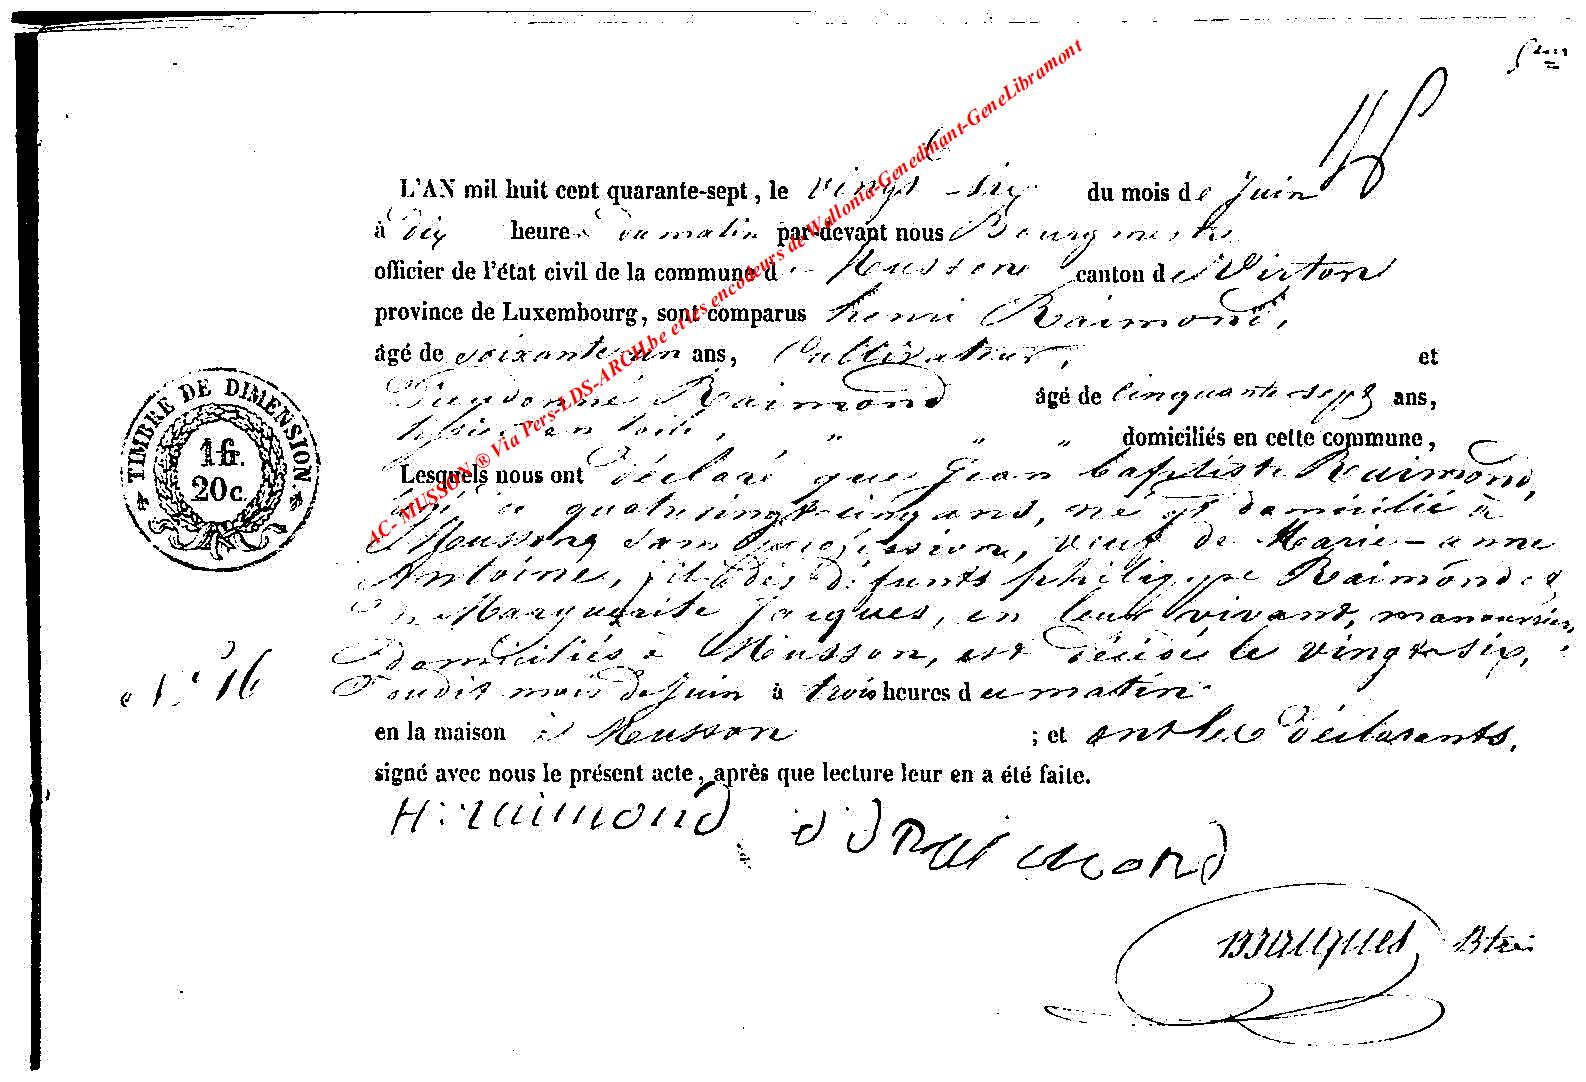 L'AN mil huit cent quarante-sept, le vingt-six du mois de Juin
à dix heures du matin par-devant nous Bourgmestre
officier de l'état civil de la commune de Musson canton de Virton
province de Luxembourg, sont comparus henri Raimond,
âgé de soixante un ans, Cultivateur, et
Dieudonné Raimond âgé de cinquante-sept ans,
tissier en toile, " " " domiciliés en cette commune,
Lesquels nous ont déclaré que Jean baptiste Raimond,
âgé de quatre vingt cinq ans, né et domicilié à
Musson, sans profession, veuf de Marie-anne
Antoine, fils des défunts philippe Raimond et
de Marguerite Jacques, en leur vivant, manouvriers,
domiciliés à Musson, est décédé le vingt-six,
du dit mois de Juin à trois heures du matin
en la maison à Musson ; et ont les déclarants,
signé avec nous le présent acte, après que lecture leur en a été faite.
N° 16
TIMBRE DE DIMENSION
1 fr.
20 c.
H: raimond d D raimond
Btre
AC- MUSSON ® Via Pers-LDS-ARCH.be et les encodeurs de Wallonia-Genedinant-GeneLibramont